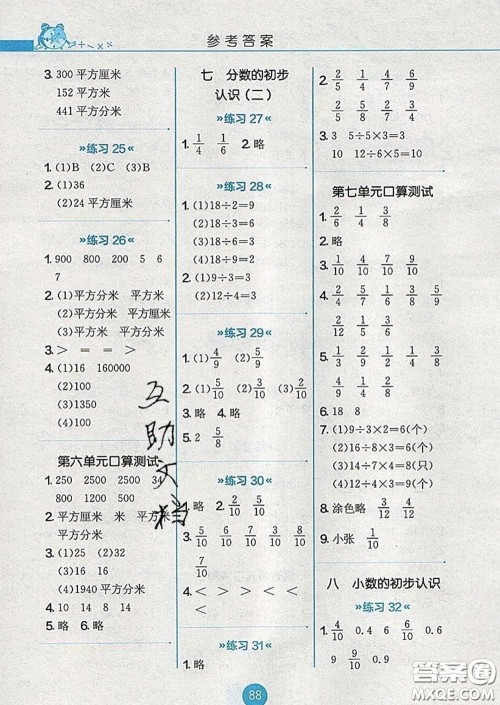 参考答案
3. 300 平方厘米
152 平方米
441 平方分米
»练习 25«
1. (1)B (2)C (3)B
2. (1)36
(2)24 平方厘米
»练习 26«
1. 900 800 200 5 6
7
2. (1)平方分米 平方米
(2)平方厘米 平方米
(3)平方厘米 平方分米
3. > = = >
4. (1)16 160000
(2)100
(3)1350
(4)100
第六单元口算测试
1. 250 2500 2500 34
800 1200 500
2. 平方厘米 米 平方米
平方分米
3. (1)25 (2)32
(3)16 16
(4)1940 平方分米
4. 10 14 8 14
5. 略 6. 略
七 分数的初步
认识(二)
»练习 27«
1. 1/4 1/6 2. 略
»练习 28«
1. (1)18÷2=9
(2)18÷3=6
(3)18÷6=3
(4)18÷9=2
2. (1)9÷3=3
(2)12÷4=3
»练习 29«
1. (1)4/9 (2)5/9
2. (1)5/10 (2)3/10 (3)2/10
3. 略 4. 略
5. 2 5/8
»练习 30«
1. 略 2. 2/10 5/10
3. 5/10 6/10 3/10 4/10 8/10
7/10
4. < > < > <
»练习 31«
1. 略
2. 2/5 1/4 4/6 6/7
2/5 8/8 4/5 4/8
3. 3 5÷5×3=3
10 12÷6×5=10
第七单元口算测试
1. 2/6 1/4 3/8
2. 略
3. 1/10 4/10 3/10 9/10
4. 2/5 2/6 1/4 5/8 6/9
5. 1/3 2/9 1/2 1/10 4/10
6. 3/4 1/5 8/8 7/9
7. 18 8
(1)9÷3×2=6(个)
(2)14÷7×3=6(个)
(3)16÷8×3=6(个)
(4)12÷4×2=6(个)
8. 涂色略 3/12 4/12
9. 小张 1/4
八 小数的初步认识
»练习 32«
1. 4/10 0.4 6/10 0.6
9 9/10 3/10 0.9
88
互助文档
答案圈
MXQE.COM